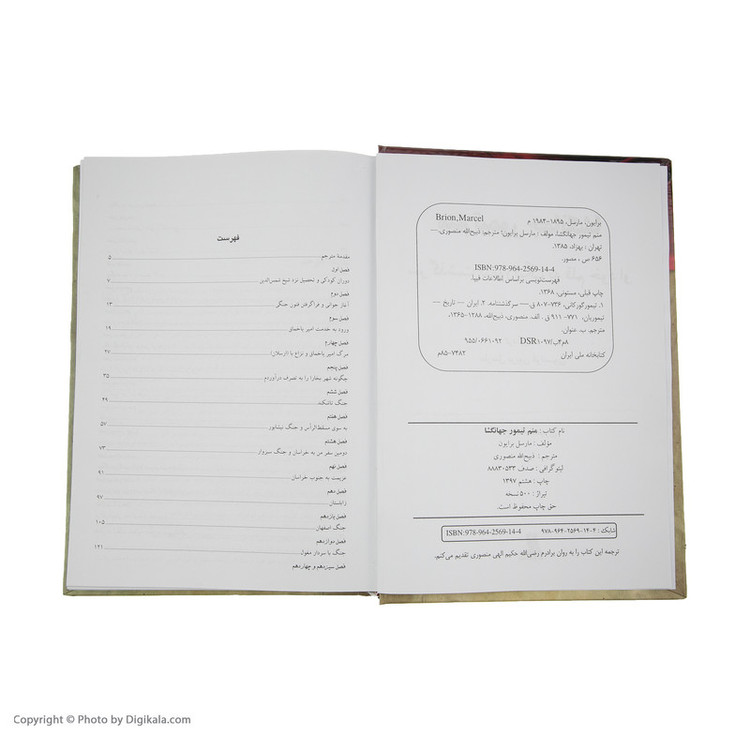 Brion, Marcel
برایون، مارسل، ۱۸۹۵-۱۹۸۴ م
منم تیمور جهانگشا، مولف : مارسل برایون؛ مترجم: ذبیح‌الله منصوری.—
تهران : بهزاد، ۱۳۸۵.
۶۵۶ ص ، مصور.
ISBN:978-964-2569-14-4
فهرست‌نویسی براساس اطلاعات فیپا.
چاپ قبلی، مستوفی، ۱۳۶۸.
۱. تیمورگورکانی، ۷۳۶-۸۰۷ ق — سرگذشتنامه. ۲. ایران — تاریخ —
تیموریان، ۷۷۱- ۹۱۱ ق. الف. منصوری، ذبیح‌الله، ۱۲۸۸-۱۳۶۵.
مترجم. ب. عنوان.
۸م۴ب/DSR۱۰۹۷ ۹۵۵/۰۶۶۱۰۹۲
کتابخانه ملی ایران ۷۴۸۲-۸۵م
نام کتاب : منم تیمور جهانگشا
مؤلف : مارسل برایون
مترجم : ذبیح‌الله منصوری
لیتوگرافی : صدف ۸۸۸۳۰۵۳۳
چاپ : هشتم ۱۳۹۷
تیراژ : ۵۰۰ نسخه
حق چاپ محفوظ است.
شابک : ۴-۱۴-۲۵۶۹-۹۶۴-۹۷۸ ISBN:978-964-2569-14-4
ترجمه این کتاب را به روان برادرم رضی‌الله حکیم الهی منصوری تقدیم می‌کنم.
فهرست
مقدمهٔ مترجم ۵
فصل اول
دوران کودکی و تحصیل نزد شیخ شمس‌الدین ۷
فصل دوم
آغاز جوانی و فراگرفتن فنون جنگی ۱۳
فصل سوم
ورود به خدمت امیر یاخماق ۱۹
فصل چهارم
مرگ امیر یاخماق و نزاع با (ارسلان) ۲۷
فصل پنجم
چگونه شهر بخارا را به تصرف درآوردم ۳۵
فصل ششم
جنگ تاشکند ۴۹
فصل هفتم
به سوی مسقط‌الرأس و جنگ نیشابور ۵۷
فصل هشتم
دومین سفر من به خراسان و جنگ سبزوار ۷۳
فصل نهم
عزیمت به جنوب خراسان ۹۱
فصل دهم
زابلستان ۹۷
فصل یازدهم
جنگ اصفهان ۱۰۵
فصل دوازدهم
جنگ با سردار مغول ۱۲۱
فصل سیزدهم و چهاردهم
Copyright © Photo by Digikala.com